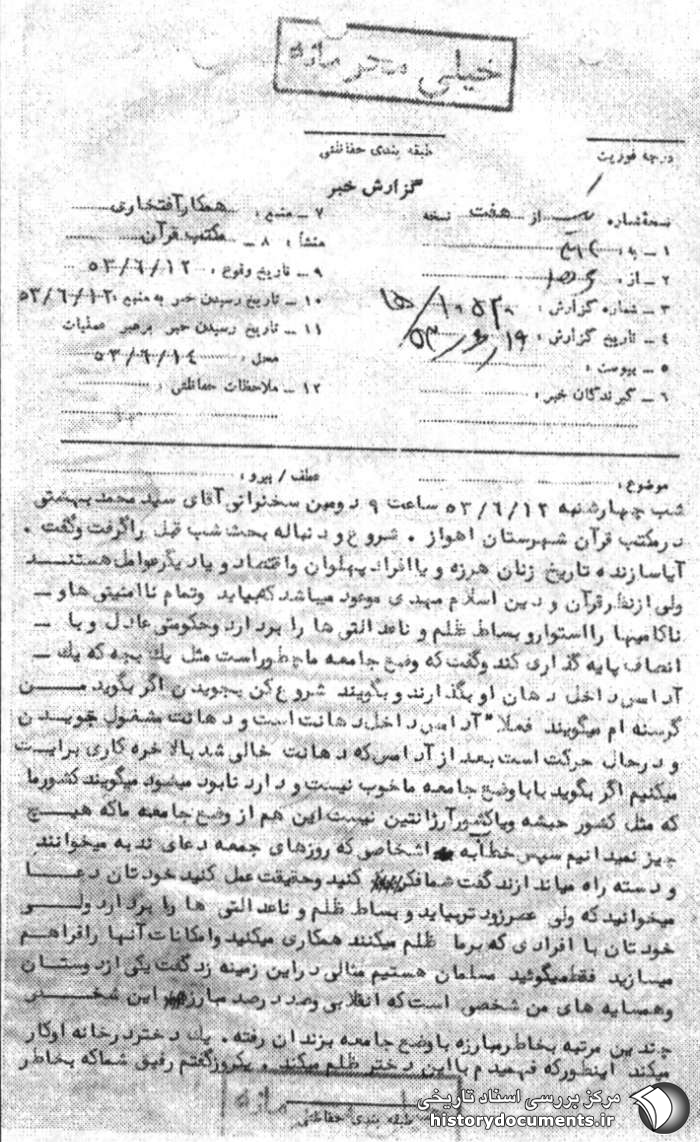 خیلی محرمانه
درجه فوریت
طبقه بندی حفاظتی
گزارش خبر
نسخه شماره از هفت نسخه
۱ ـ به :
۲ ـ از :
۳ ـ شماره گزارش : ۱۰۵۲۰/ها
۴ ـ تاریخ گزارش : ۱۹/۶/۵۳
۵ ـ پیوست :
۶ ـ گیرندگان خبر :
۷ ـ منبع : همکار افتخاری
۸ ـ منشأ : مکتب قرآن
۹ ـ تاریخ وقوع : ۵۳/۶/۱۲
۱۰ ـ تاریخ رسیدن خبر به منبع : ۵۳/۶/۱۲
۱۱ ـ تاریخ رسیدن خبر برهبر عملیات
محل : ۵۳/۶/۱۴
۱۲ ـ ملاحظات حفاظتی :
موضوع :
عطف / پیرو :
شب چهارشنبه ۵۳/۶/۱۲ ساعت ۹ دومین سخنرانی آقای سید محمد بهشتی
در مکتب قرآن شهرستان اهواز . شروع و دنباله بحث شب قبل را گرفت و گفت .
آیا سازنده تاریخ زنان هرزه و یا افراد پهلوان و اقتصاد و یا دیگر عوامل هستند
ولی از نظر قرآن و دین اسلام مهدی موعود میباشد که بیاید وتمام ناامنیتی ها و ـ
ناکامیها را استوار و بساط ظلم و ناعدالتی ها را بردارد و حکومتی عادل و با ـ
انصاف پایه گذاری کند وگفت که وضع جامعه ما چطور است مثل یك بچه که یك ـ
آدامس داخل دهان او بگذارند و بگویند شروع کن بجویدن اگر بگوید من
گرسنه ام میگویند فعلا" آدامس داخل دهانت است و دهانت مشغول جویدن
و در حال حرکت است بعد از آدامس که دهانت خالی شد بالاخره کاری برایت
میکنیم اگر بگوید بابا وضع جامعه ما خوب نیست و دارد نابود میشود میگویند کشور ما
که مثل کشور حبشه ویا کشور آرژانتین نیست این هم از وضع جامعه ما که هیچ
چیز نمیدانیم سپس خطاب به اشخاصی که روزهای جمعه دعای ندبه میخوانند
و دسته راه میاندازند گفت شما فکر کنید وحقیقت عمل کنید خودتان دعا
میخوانید که ولی عصر زودتر بیاید و بساط ظلم و ناعدالتی ها را بردارد ولی
خودتان با افرادی که بر ما ظلم میکنند همکاری میکنید و امکانات آنها را فراهم
میسازید فقط میگوئید مسلمان هستیم مثالی در این زمینه زد گفت یکی از دوستان
وهمسایه های من شخصی است که انقلابی وصد در صد مبارز این شخصی
چندین مرتبه بخاطر مبارزه با وضع جامعه بزندان رفته . یك دختر در خانه او کار
میکند اینطور که فهمیدم با این دختر ظلم میکند . یکروز گفتم رفیق شما که بخاطر
طبقه بندی حفاظتی
مرکز بررسی اسناد تاریخی
historydocuments.ir